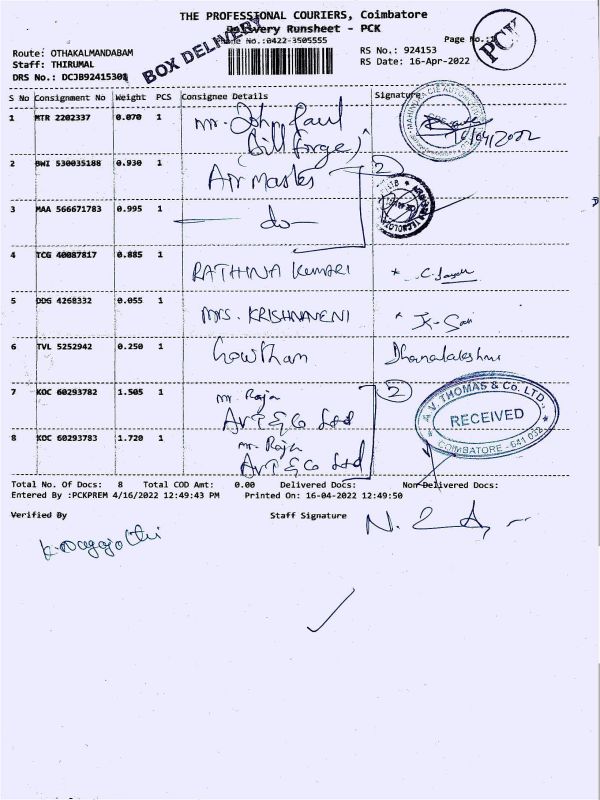 THE PROFESSIONAL COURIERS, Coimbatore
Delivery Runsheet - PCK
Phone No.:0422-3505555
Page No.:
PCK
BOX DELIVERY
Route: OTHAKALMANDABAM
RS No.: 924153
Staff: THIRUMAL
RS Date: 16-Apr-2022
DRS No.: DCJB92415301
S No Consignment No Weight PCS Consignee Details Signature
1 MTR 2202337 0.070 1 Mr. John Paul
(Bill forge)
2 BWI 530035188 0.930 1 Air Masters 2
3 MAA 566671783 0.995 1 — do —
4 TCG 40087817 0.885 1 RATHNA KUMARI
5 DDG 4268332 0.055 1 MRS. KRISHNAVENI
6 TVL 5252942 0.250 1 Gowtham Dhanalakshmi
7 KOC 60293782 1.505 1 Mr. Raja 2
AVT & Co Ltd
8 KOC 60293783 1.720 1 Mr. Raja
AVT & Co Ltd
A.V. THOMAS & Co. LTD.,
RECEIVED
COIMBATORE - 641 032
Total No. Of Docs: 8 Total COD Amt: 0.00 Delivered Docs: Non-Delivered Docs:
Entered By :PCKPREM 4/16/2022 12:49:43 PM Printed On: 16-04-2022 12:49:50
Verified By Staff Signature